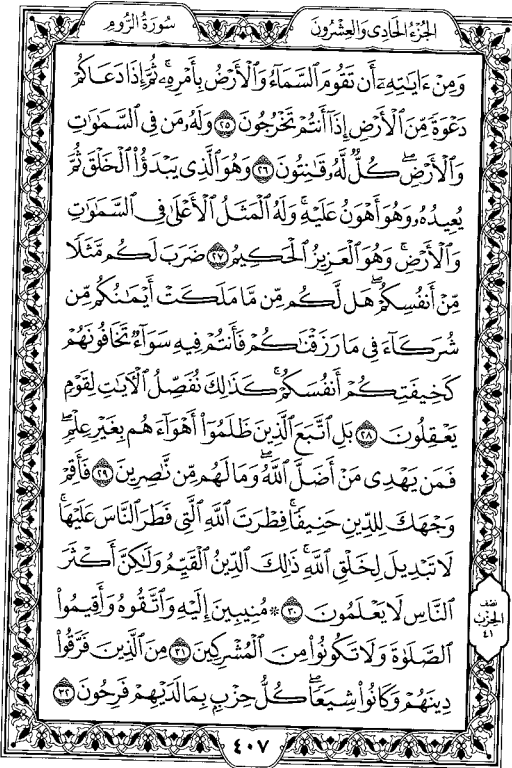 سُورَةُ الرُّومِ
الجُزْءُ الحَادِى وَالعِشْرُونَ
وَمِنْ ءَايَٰتِهِۦٓ أَن تَقُومَ ٱلسَّمَآءُ وَٱلْأَرْضُ بِأَمْرِهِۦ ۚ ثُمَّ إِذَا دَعَاكُمْ
دَعْوَةً مِّنَ ٱلْأَرْضِ إِذَآ أَنتُمْ تَخْرُجُونَ ٢٥ وَلَهُۥ مَن فِى ٱلسَّمَٰوَٰتِ
وَٱلْأَرْضِ ۖ كُلٌّ لَّهُۥ قَٰنِتُونَ ٢٦ وَهُوَ ٱلَّذِى يَبْدَؤُا۟ ٱلْخَلْقَ ثُمَّ
يُعِيدُهُۥ وَهُوَ أَهْوَنُ عَلَيْهِ ۚ وَلَهُ ٱلْمَثَلُ ٱلْأَعْلَىٰ فِى ٱلسَّمَٰوَٰتِ
وَٱلْأَرْضِ ۚ وَهُوَ ٱلْعَزِيزُ ٱلْحَكِيمُ ٢٧ ضَرَبَ لَكُم مَّثَلًا
مِّنْ أَنفُسِكُمْ ۖ هَل لَّكُم مِّن مَّا مَلَكَتْ أَيْمَٰنُكُم مِّن
شُرَكَآءَ فِى مَا رَزَقْنَٰكُمْ فَأَنتُمْ فِيهِ سَوَآءٌ تَخَافُونَهُمْ
كَخِيفَتِكُمْ أَنفُسَكُمْ ۚ كَذَٰلِكَ نُفَصِّلُ ٱلْءَايَٰتِ لِقَوْمٍ
يَعْقِلُونَ ٢٨ بَلِ ٱتَّبَعَ ٱلَّذِينَ ظَلَمُوٓا۟ أَهْوَآءَهُم بِغَيْرِ عِلْمٍ ۖ
فَمَن يَهْدِى مَنْ أَضَلَّ ٱللَّهُ ۖ وَمَا لَهُم مِّن نَّٰصِرِينَ ٢٩ فَأَقِمْ
وَجْهَكَ لِلدِّينِ حَنِيفًا ۚ فِطْرَتَ ٱللَّهِ ٱلَّتِى فَطَرَ ٱلنَّاسَ عَلَيْهَا ۚ
لَا تَبْدِيلَ لِخَلْقِ ٱللَّهِ ۚ ذَٰلِكَ ٱلدِّينُ ٱلْقَيِّمُ وَلَٰكِنَّ أَكْثَرَ
ٱلنَّاسِ لَا يَعْلَمُونَ ٣٠ ۞ مُنِيبِينَ إِلَيْهِ وَٱتَّقُوهُ وَأَقِيمُوا۟
ٱلصَّلَوٰةَ وَلَا تَكُونُوا۟ مِنَ ٱلْمُشْرِكِينَ ٣١ مِنَ ٱلَّذِينَ فَرَّقُوا۟
دِينَهُمْ وَكَانُوا۟ شِيَعًا ۖ كُلُّ حِزْبٍۭ بِمَا لَدَيْهِمْ فَرِحُونَ ٣٢
نصف
الحزب
٤١
٤٠٧